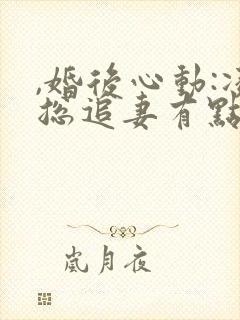 ,婚後心動:凌
總追妻有點
嵐月夜